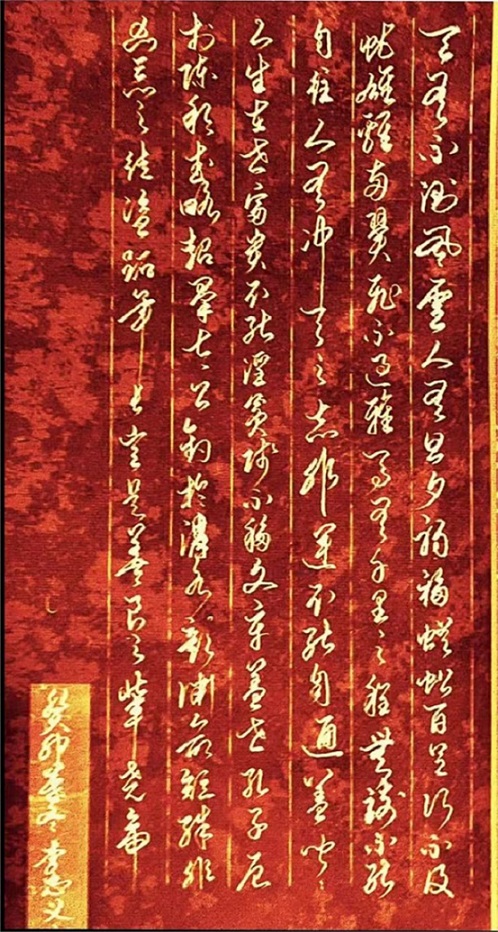 天有不测風雲人有旦夕禍福蜈蚣百足行不及
蛇雄雞两翼飛不過鴉馬有千里之程無騎不能
自往人有冲天之志非運不能自通蓋聞
人生在世富貴不能淫貧賤不移文章蓋世孔子厄
於陳邦武略超羣太公釣於渭水顏淵命短殊非
凶惡之徒盜跖年長豈是善良之輩堯帝
癸卯冬李义